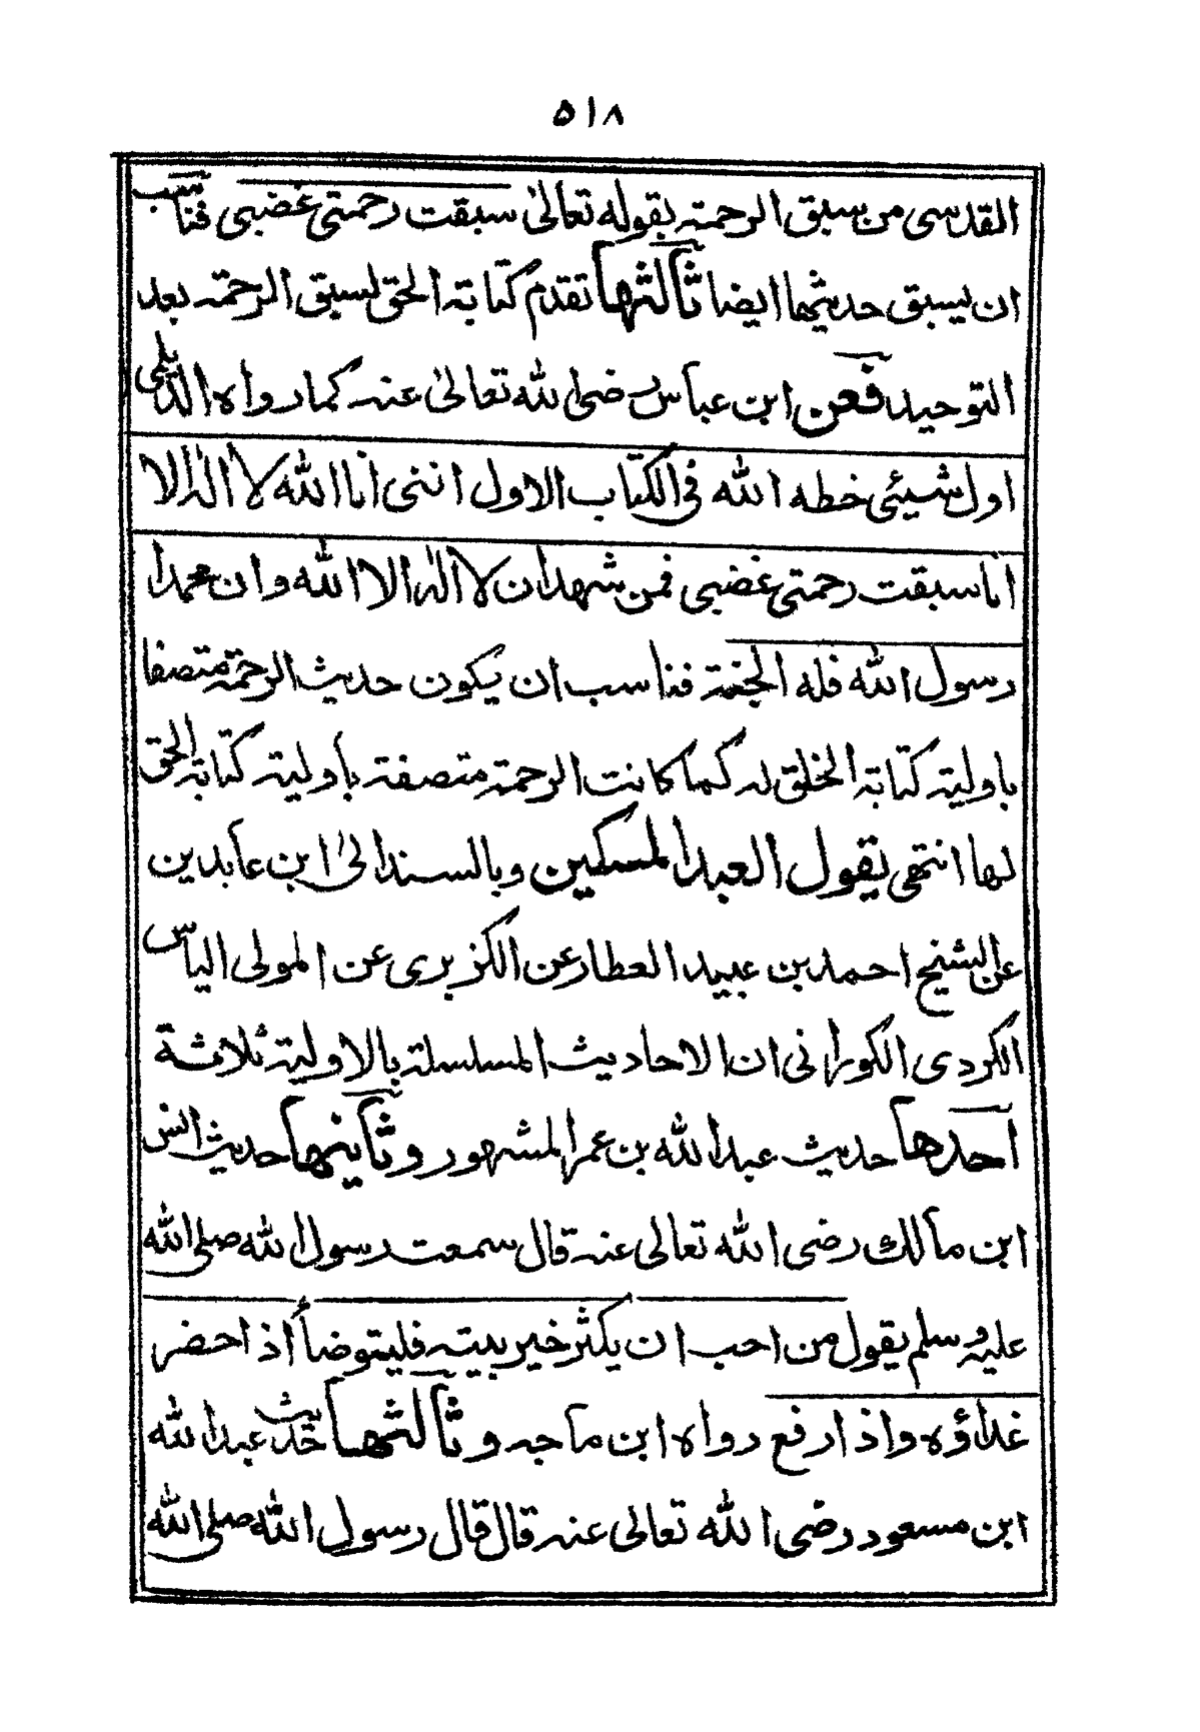 ٥١٨
القدسى من سبق الرحمة بقوله تعالىٰ سبقت رحمتى غضبى فناسب
ان يسبق حديثها ايضا ثالثها تقدم كتابة الحق لسبق الرحمة بعد
التوحيد فعن ابن عباس رضى الله تعالىٰ عنه كما رواه الديلمى
اول شيئى خطه الله فى الكتاب الاول اننى انا الله لا اله الا
انا سبقت رحمتى غضبى فمن شهد ان لا اله الا الله وان محمدا
رسول الله فله الجنة فناسب ان يكون حديث الرحمة متصفا
باولية كتابة الخلق له كما كانت الرحمة متصفة بأولية كتابة الحق
لها انتهى يقول العبد المسكين وبالسند الىٰ ابن عابدين
عن الشيخ احمد بن عبيد العطار عن الكزبرى عن المولى الياس
الكردى الكورانى ان الاحاديث المسلسلة بالاولية ثلاثة
احدها حديث عبد الله بن عمر المشهور وثانيها حديث انس
ابن مالك رضى الله تعالى عنه قال سمعت رسول الله صلى الله
عليه وسلم يقول من احب ان يكثر خير بيته فليتوضأ اذا حضر
غداؤه واذا رفع رواه ابن ماجه وثالثها حديث عبد الله
ابن مسعود رضى الله تعالى عنه قال قال رسول الله صلى الله